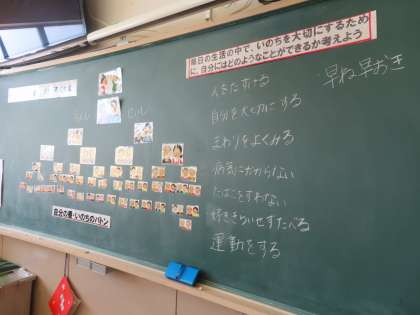 毎日の生活の中で、いのちを大切にするため
に、自分にはどのようなことができるか考えよう
早ね早おき
人をたすける
自分を大切にする
まわりをよくみる
病気にかからない
たばこをすわない
好ききらいせずたべる
運動をする
自分の番・いのちのバトン